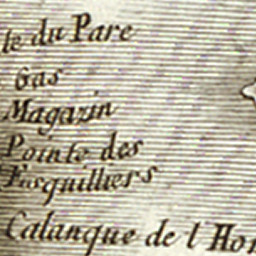 le du Pare
Gas
Magazin
Pointe des
Fosquilliers
Calanque de l Hor